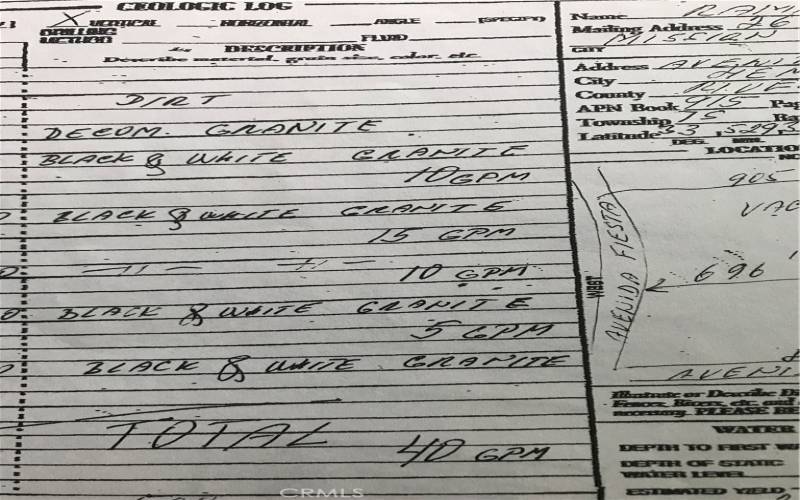 GEOLOGIC LOG
X VERTICAL HORIZONTAL ANGLE (SPECIFY)
DRILLING
METHOD FLUID
DESCRIPTION
Describe material, grain size, color, etc.
DIRT
DECOM. GRANITE
BLACK & WHITE GRANITE
10 GPM
BLACK & WHITE GRANITE
15 GPM
-11- -11-
10 GPM
BLACK & WHITE GRANITE
5 GPM
BLACK & WHITE GRANITE
TOTAL
40 GPM
Name
Mailing Address 26
MISSION
CITY
Address AVENI
City HEM
County RIVE
APN Book 915 Pag
Township 7S Ra
Latitude 33
DEG. MIN.
LOCATIO
905
VAC
WEST
AVENIDA FIESTA
696
AVENI
Illustrate or Describe Di
Fences, Rivers, etc. and
necessary. PLEASE BE
WATER
DEPTH TO FIRST W
DEPTH OF STATIC
WATER LEVEL
ESTIMATED YIELD
CRMLS